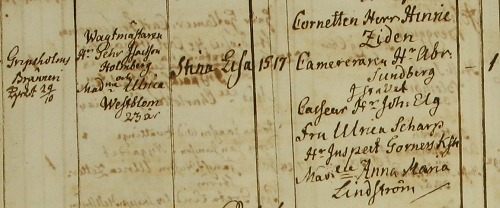 Gripsholms
Bränneri
29
10
Wagtmästaren
Hr Pehr Jacobson
Holmberg
och
Mad:m Ulrica
Westblom
23 år
Stina Lisa
15 17
Cornetten Herr Hinric
Ziden
Camereraren Hr Abr:
Sundberg
i gravet
Casseur Hr Joh: Elg
fru Ulrica Scharp
Hr Inspect
Mariele Anna Maria
Lindström
1